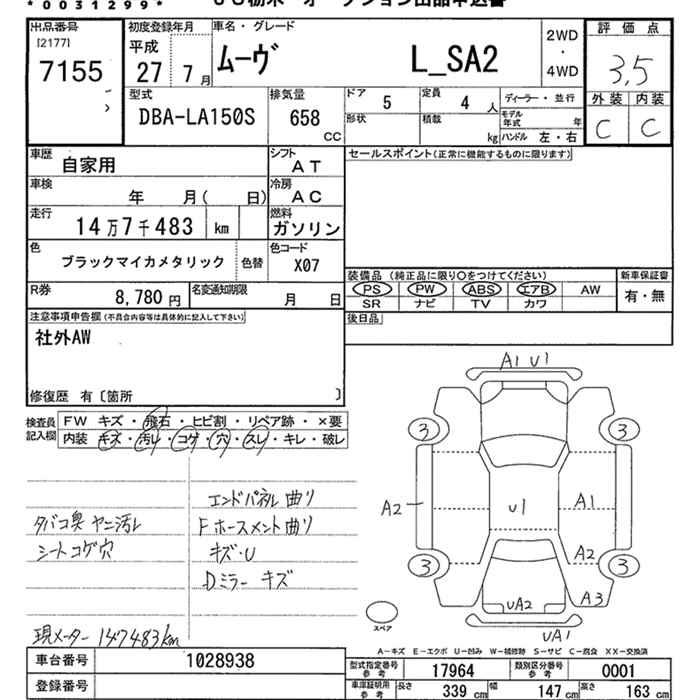 *0031299*
出品番号
[2177]
7155
初度登録年月
平成
27 7月
車名・グレード
ムーヴ L_SA2
2WD
・
4WD
評価点
3,5
外装 内装
C C
型式
DBA-LA150S
排気量
658
CC
ドア 5
定員 4人
ディーラー・並行
形状
積載 kg
モデル年式 年
ハンドル 左・右
車歴 自家用
シフト AT
セールスポイント(正常に機能するものに限ります)
車検 年 月( 日)
冷房 AC
走行 14万7千483 km
燃料 ガソリン
色 ブラックマイカメタリック 色替
色コード X07
装備品 (純正品に限り○をつけてください)
新車保証書
PS PW ABS エアB AW
有・無
SR ナビ TV カワ
R券 8,780円
名変通知期限 月 日
後日品
注意事項申告欄(不具合内容等は具体的に記入して下さい)
社外AW
修復歴 有〔箇所 〕
検査員記入欄
FW キズ・飛石・ヒビ割・リペア跡・×要
内装 キズ・汚レ・コゲ・穴・スレ・キレ・破レ
タバコ臭 ヤニ汚レ
シートコゲ穴
現メーター 147483km
エンドパネル曲り
Fホースメント曲り
キズ・U
Dミラー キズ
A1 U1
3 3
A2
U1
A1
A2
3 3
UA2
A3
UA1
スペア
A-キズ E-エクボ U-凹み W-補修跡 S-サビ C-腐食 XX-交換済
車台番号 1028938
登録番号
型式指定番号参考 17964
類別区分番号参考 0001
車庫証明用参考
長さ 339 cm
幅 147 cm
高さ 163 cm